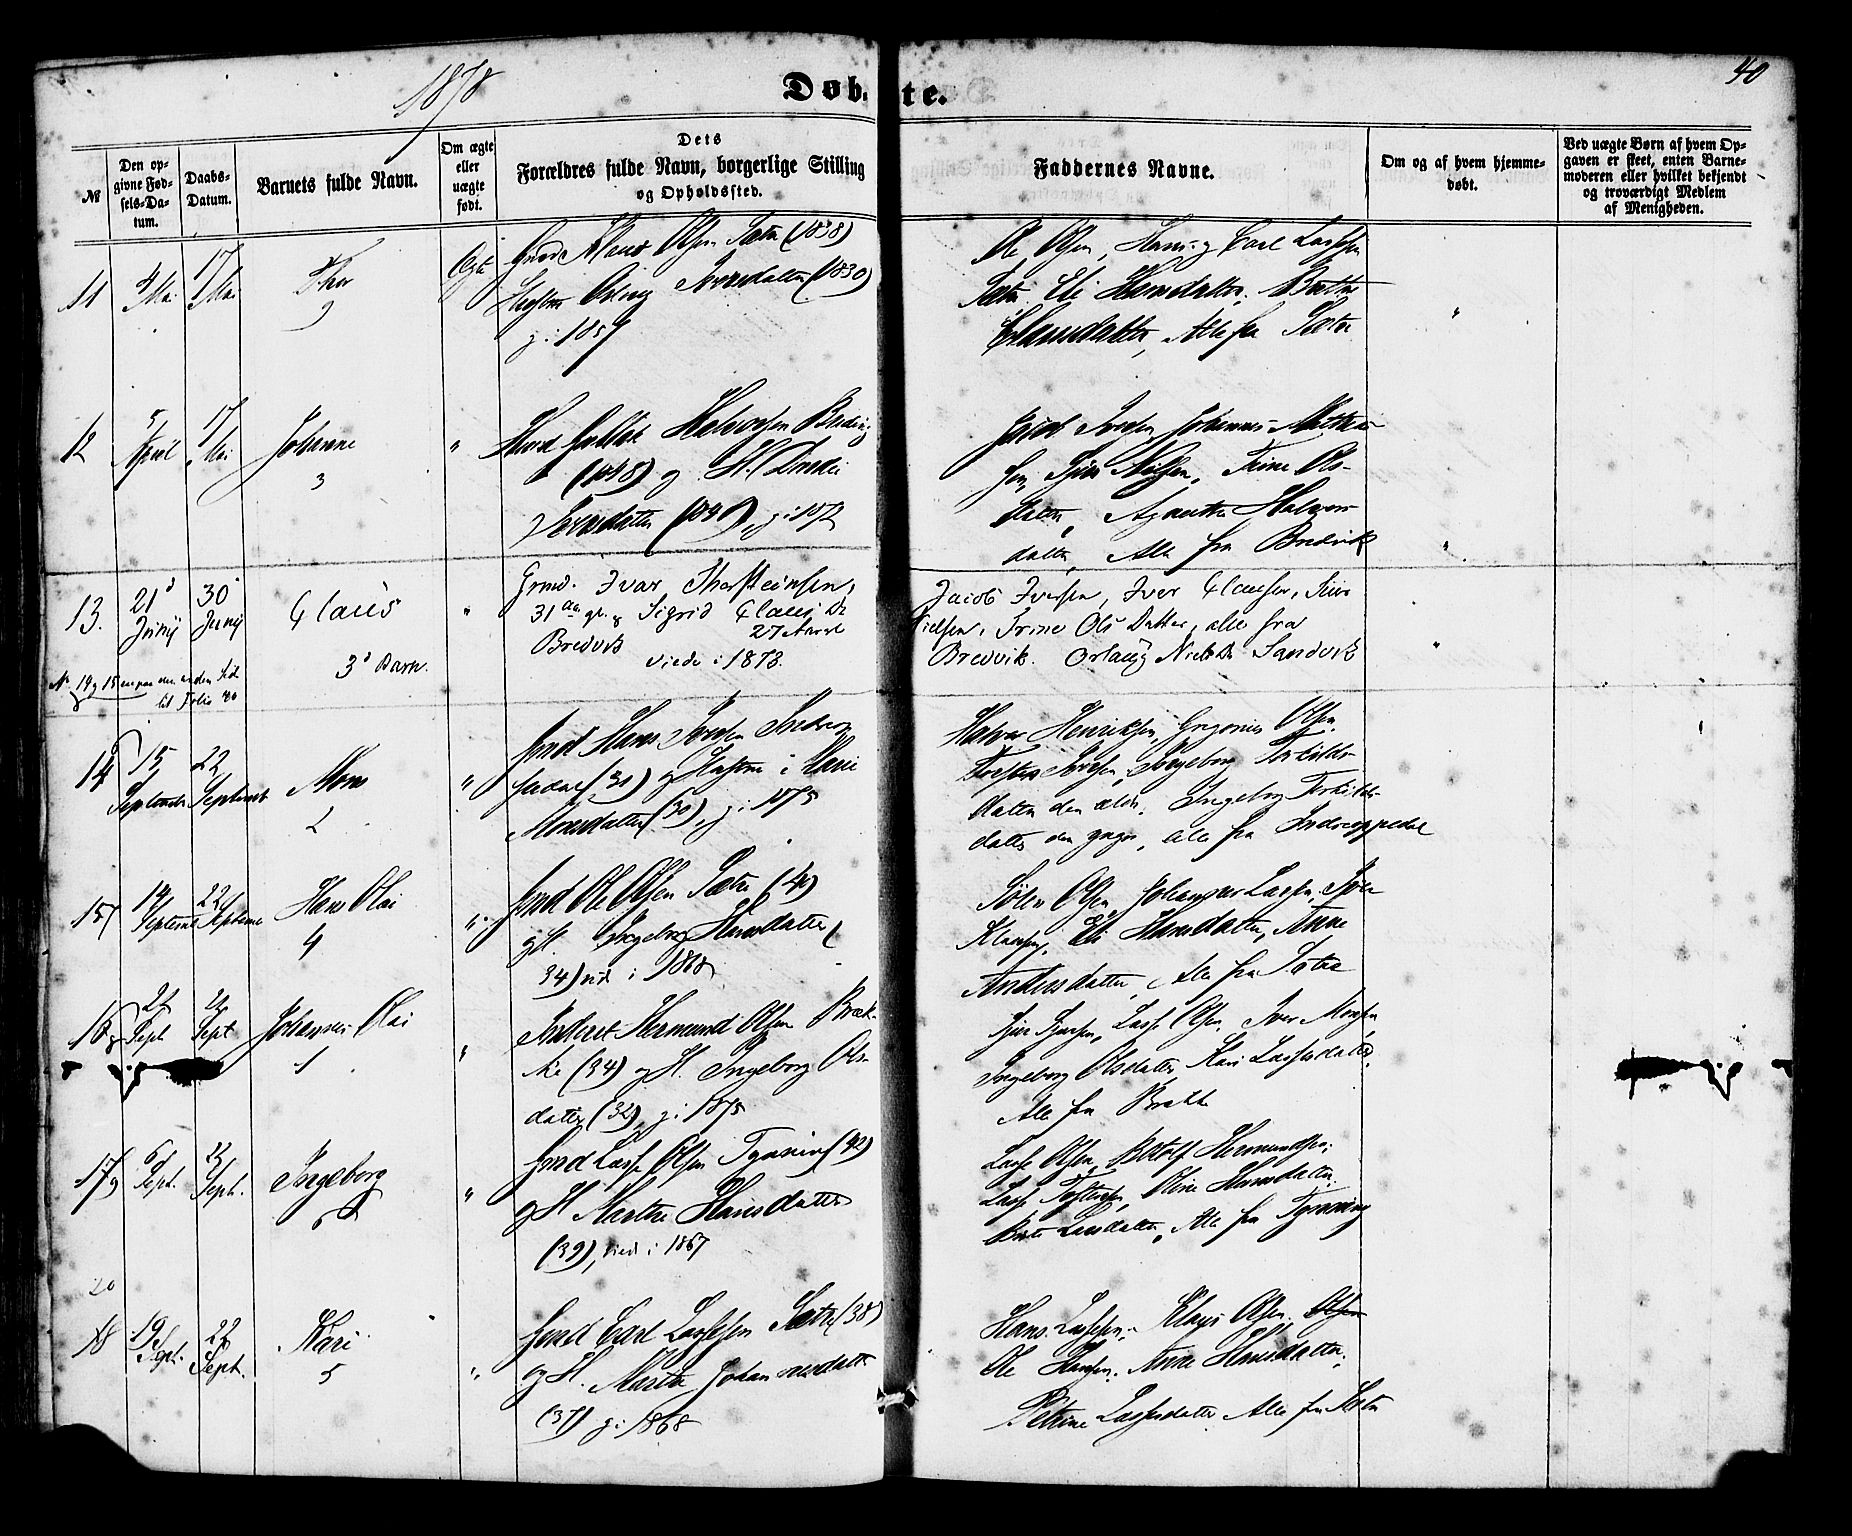 1878
Døbte.
40
№
Den opgivne Fødsels-Datum.
Daabs-Datum.
Barnets fulde Navn.
Om ægte eller uægte født.
Dets Forældres fulde Navn, borgerlige Stilling og Opholdssted.
Faddernes Navne.
Om og af hvem hjemmedøbt.
Ved uægte Børn af hvem Opgaven er skeet, enten Barnemoderen eller hvilket bekjendt og troværdigt Medlem af Menigheden.
11
4 Mai
17 Mai
Thor
9
Ægte
Klaus Olsen Sætre (1838)
Iversdatter (1830)
g: 1857
Ole Olsen, Hans og Carl Lassesen
Sætre, Eli Hansdatter, Berthe
Clausdatter, Alle fra Sætre
12
5 April
17 Mai
Johanne
3
"
Halvorsen Bredvig
(1848) og H.
Iversdatter g: 1872
Jacob Iversen, Johannes Mathias-
sen, Sjur Nilsen, Trine Ols-
datter, Agnethe Halvors-
datter, Alle fra Bredvik
"
13.
21d Junij
30 Junij
Claus
3d Barn.
"
Grmd. Ivar Thorsteinsen,
31 Aar gl. og Sigrid Claus Dr
27 Aar
Bredvik
viede i 1873.
Jacob Iversen, Iver Clausen, Siur
Nielsen, Trine Ols Datter, alle fra
Bredvik. Orlaug Niels Dr Sandvik
"
14
15 September
22 September
Mons
2
"
Gmd Hans Iversen Indreop-
pedal (31) og Hustru Marie
Monsdatter (30), g: 1875
Halvor Henriksen, Gregorius Olsen
Torsten Iversen, Ingeborg Torkilds-
datter den ældr. Ingeborg Torkilds-
datter den yngre, alle fra Indreoppedal
15
14 September
22 September
Hans Olai
4
"
Gmd Ole Olsen Sætre (40)
og H. Ingeborg Hansdatter (
34) vied i 1868
Søren Olsen, Johannes Lassesen, Iver
Klausen, Eli Hansdatter, Anne
Andersdatter, Alle fra Sætre
16
22 Sept
22 Sept
Johannes Olai
1
"
Inderst Hermund Olsen Bræk-
ke (34) og H. Ingeborg Ols-
datter (32), g: 1875
Sjur Sjursen, Lasse Olsen, Iver Monsen
Ingeborg Olsdatter, Kari Lassesdatter
Alle fra Brække
17
6 Sept.
22 Sept.
Ingeborg
6
"
Gmd Lasse Olsen Tynning (42)
og H Marthe Hansdatter
(39), vied i 1867
Lasse Olsen, Botolf Hermundsen,
Lasse Olsen, Oline Hansdatter,
Berte Lassedatter, Alle fra Tynning
20
18
19 Sept.
22 Sept.
Kari
5
"
Gmd Carl Lassesen Sætre (38)
og H. Martha Johannesdatter
(37) g: 1868
Hans Lassesen, Klaus Olsen, Olsen
Ole Hansen, Anne Hansdatter,
Petrine Lassesdatter Alle fra Sætre